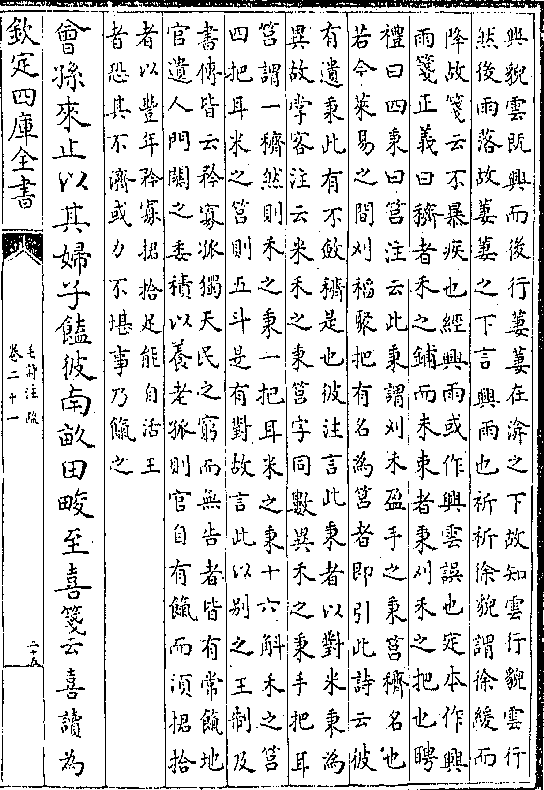 興貌雲既興而後行萋萋在渰之下故知雲行貌雲行
然後雨落故萋萋之下言興雨也祈祈徐貌謂徐緩而
降故箋云不暴疾也經興雨或作興雲誤也定本作興
雨箋正義曰穧者禾之鋪而未束者秉刈禾之把也聘
禮曰四秉曰筥注云此秉謂刈禾盈手之秉筥穧名也
若今萊易之間刈稻聚把有名為筥者即引此詩云彼
有遺秉此有不斂穧是也彼注言此秉者以對米秉為
異故掌客注云米禾之秉筥字同數異禾之秉手把耳
筥謂一穧然則禾之秉一把耳米之秉十六斛禾之筥
四把耳米之筥則五斗是有對故言此以别之王制及
書傳皆云矜寡孤獨天民之窮而無告者皆有常餼地
官遺人門關之委積以養老孤則官自有餼而須捃拾
者以豐年矜寡捃拾足能自活王
者恐其不濟或力不堪事乃餼之
曾孫來止以其婦子饁彼南畝田畯至喜箋云喜讀為
欽定四庫全書
毛詩注疏
卷二十一
二十五